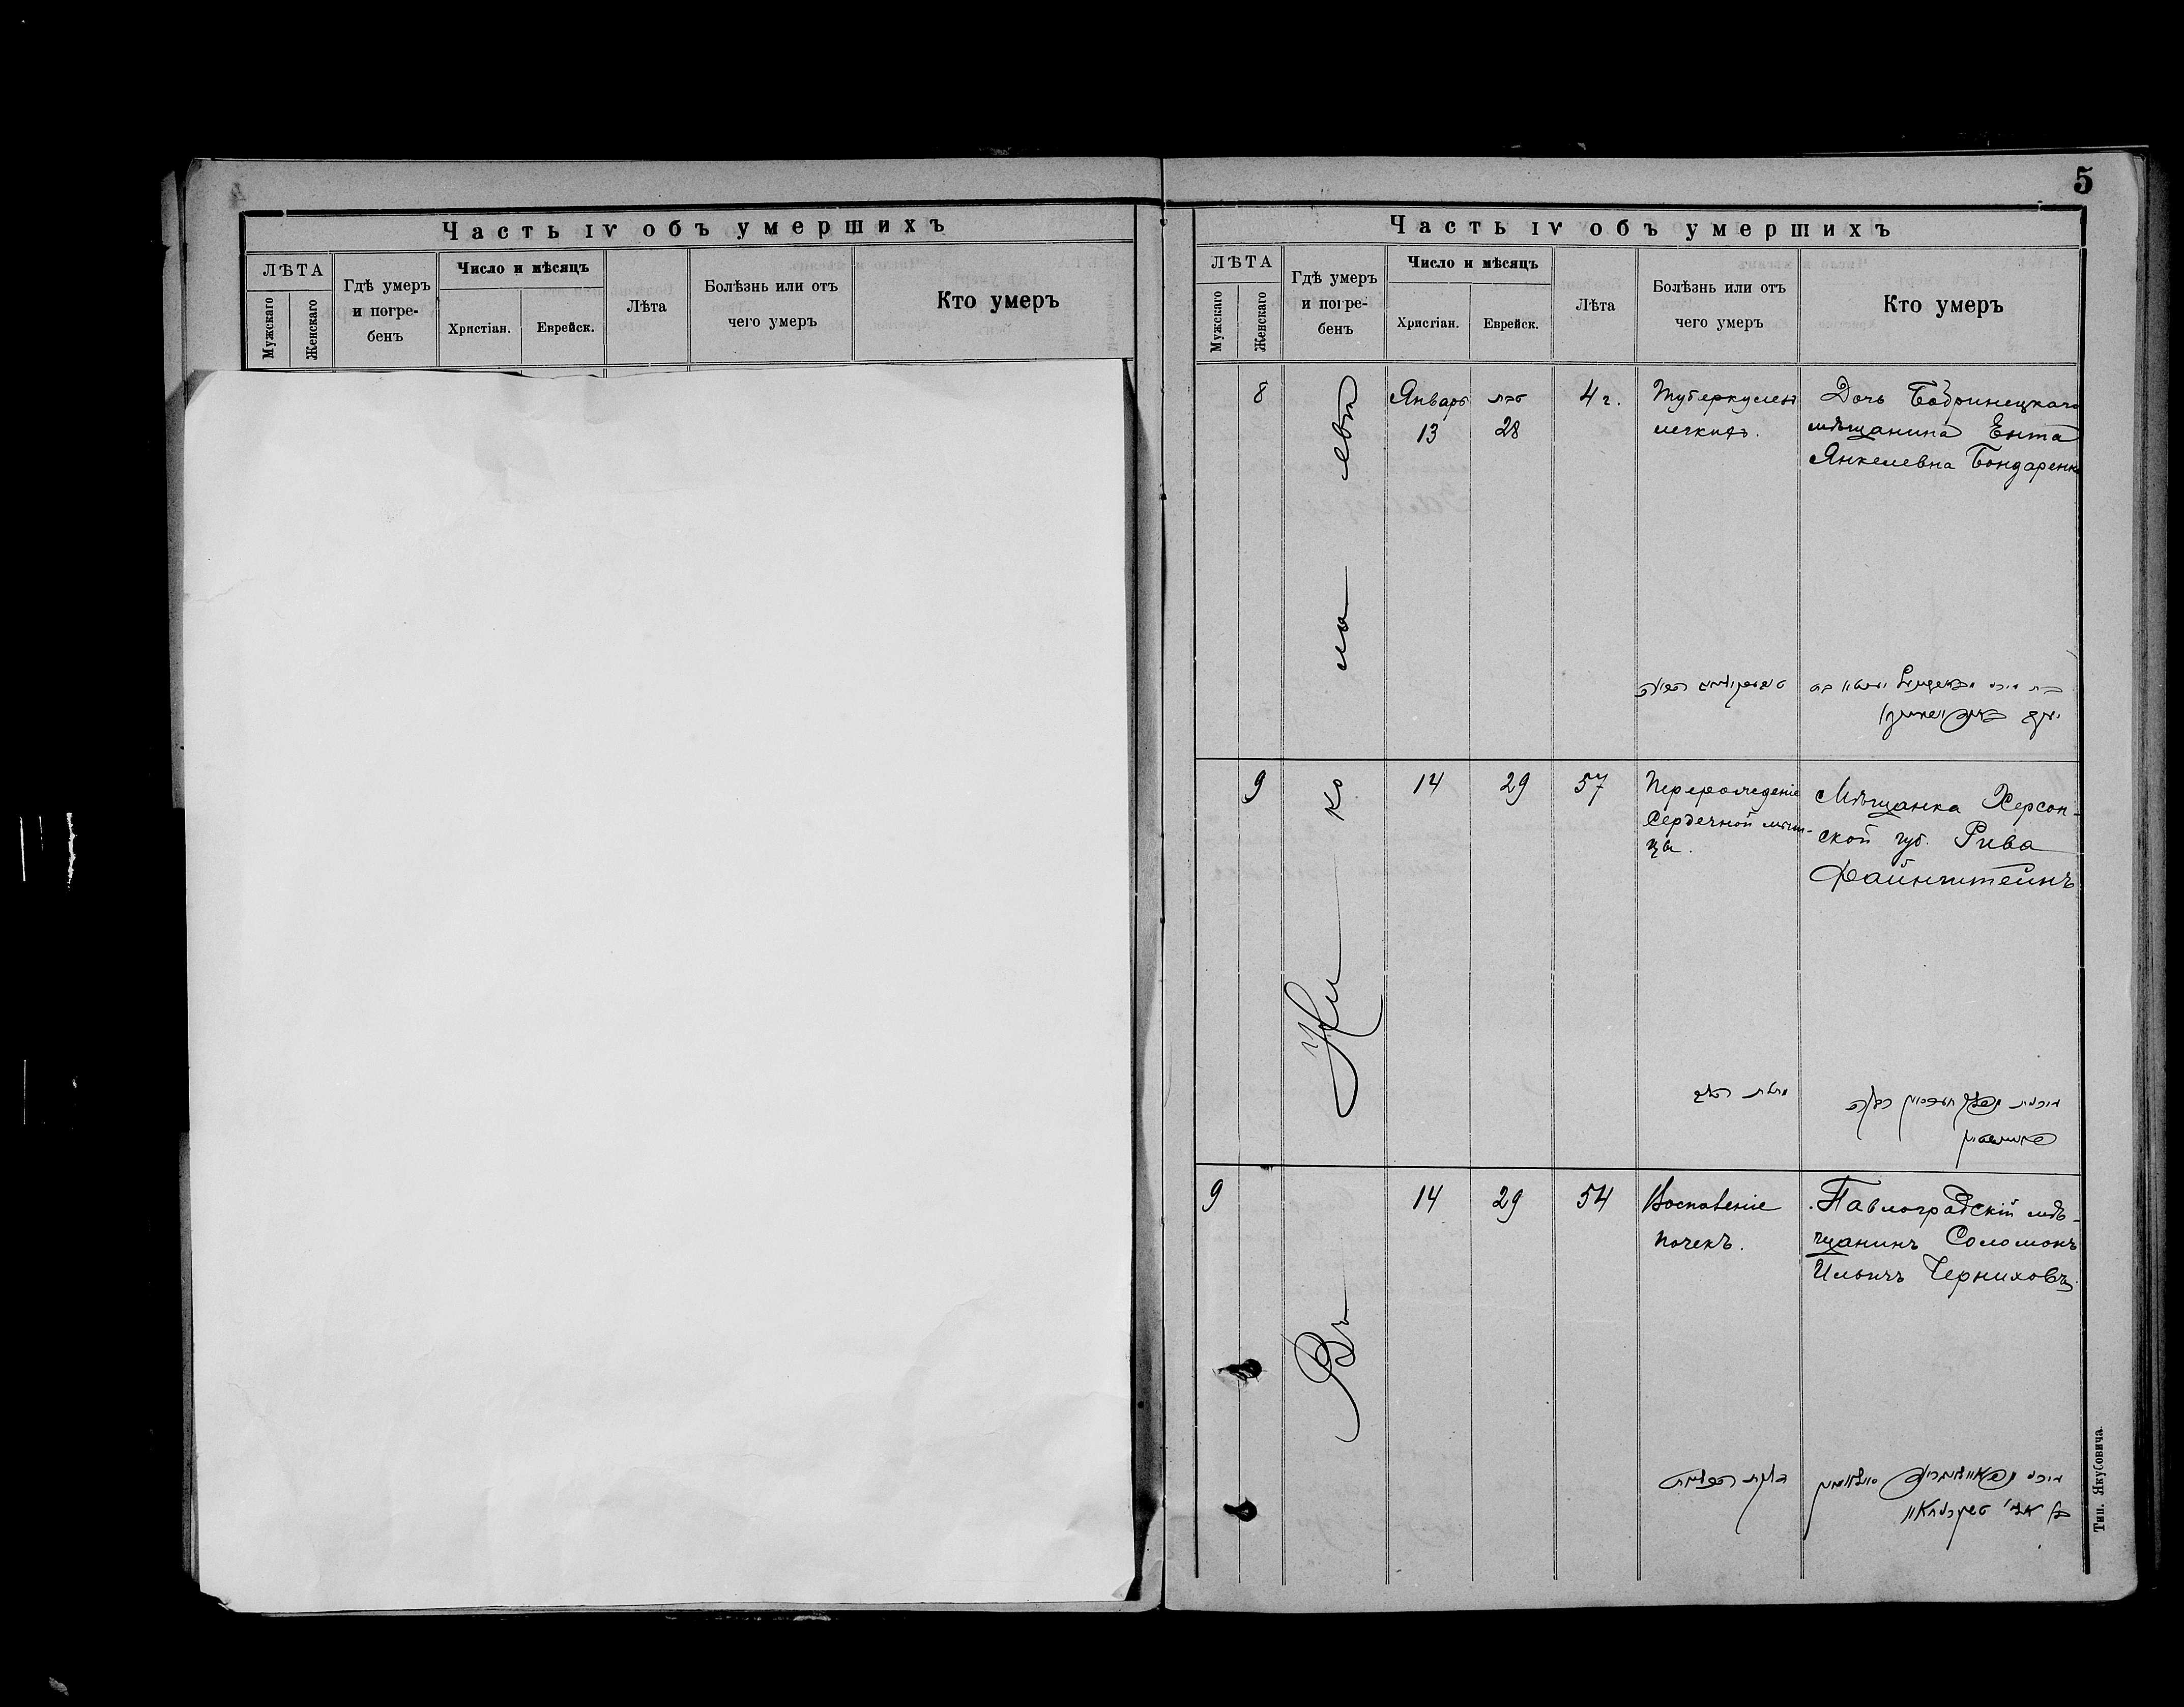 Часть IV объ умершихъ
ЛѢТА
Мужскаго
Женскаго
Гдѣ умеръ
и погре-
бенъ
Число и мѣсяцъ
Христіан.
Еврейск.
Лѣта
Болѣзнь или отъ
чего умеръ
Кто умеръ
5
Часть IV объ умершихъ
ЛѢТА
Мужскаго
Женскаго
Гдѣ умеръ
и погре-
бенъ
Число и мѣсяцъ
Христіан.
Еврейск.
Лѣта
Болѣзнь или отъ
чего умеръ
Кто умеръ
Въ Николаевѣ
8
Январь
13
טבת
28
4 г.
Туберкулезъ
легкихъ.
Дочь Бобринецкаго
мѣщанина Ента
Янкелевна Бондаренко
9
14
29
57
Перерожденіе
сердечной мыш-
цы.
Мѣщанка Херсон-
ской губ. Рива
Файнштейнъ
9
14
29
54
Воспаленіе
почекъ.
Павлоградскій мѣ-
щанинъ Соломонъ
Ильичъ Черниховъ
Тип. Якубовича.